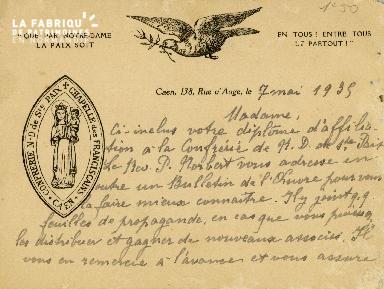 LA FABRIQUE
DE PATRIMOINES
EN NORMANDIE
1f50
"QUE PAR NOTRE-DAME
LA PAIX SOIT
EN TOUS! ENTRE TOUS
ET PARTOUT!"
Caen, 138, Rue d'Auge, le 7 mai 1935
CONFRÉRIE N.-D. de Ste PAIX
CHAPELLE des FRANCISCAINS
CAEN
Madame,
Ci-inclus votre diplôme d'affilia-
tion à la Confrérie de N. D. de Ste Paix
Le Rev. P. Norbert vous adresse en
outre un Bulletin de l'Œuvre pour vous
la faire mieux connaître. Il y joint q.q.
feuilles de propagande, en cas que vous puissiez
les distribuer et gagner de nouveaux associés. Il
vous en remercie à l'avance et vous assure